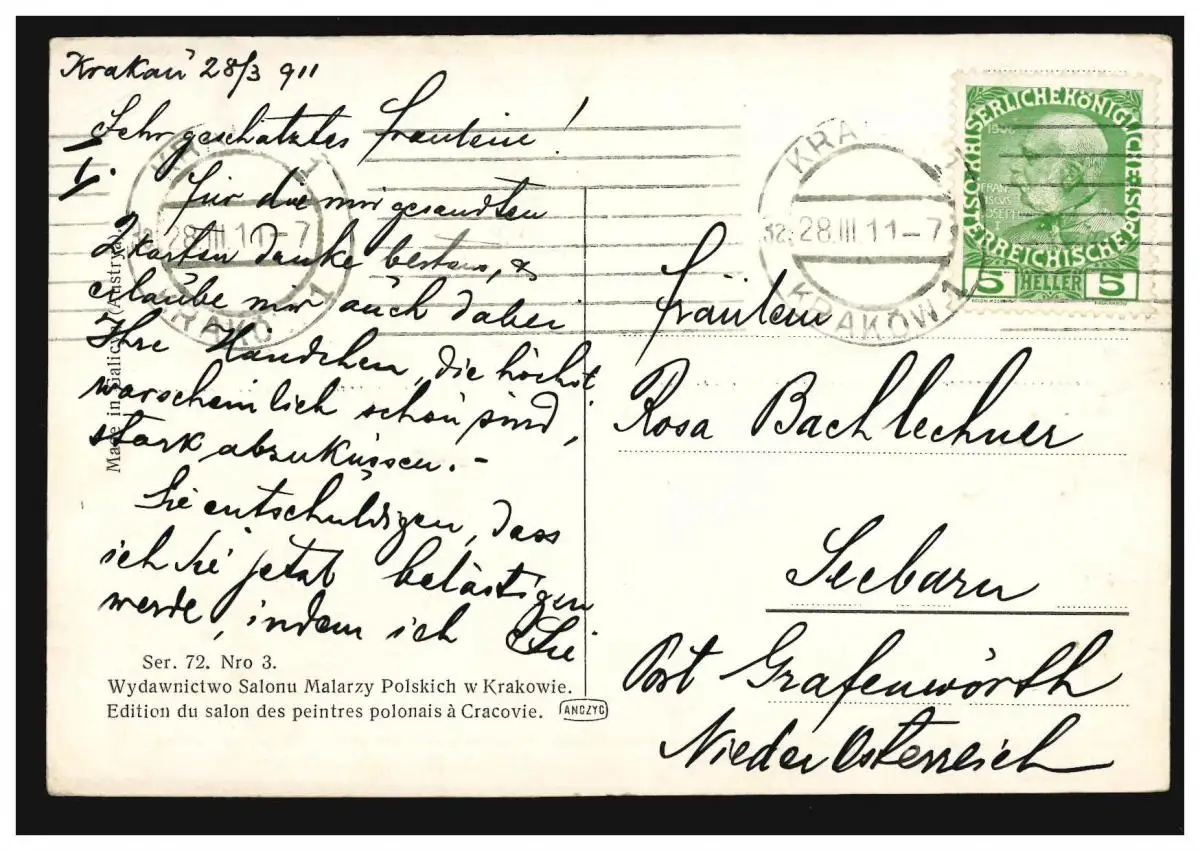 Krakau 28/3 911
Sehr geschätztes Fräulein!
I.
Für die mir gesandten
2 karten danke bestens, &
erlaube mir auch dabei
Ihre Händchen, die höchst
warscheinlich schön sind,
stark abzuküssen.-
Sie entschuldigen, dass
ich Sie jetzt belästigen
werde, indem ich Sie
Made in Galicya (Austrya)
Ser. 72. Nro 3.
Wydawnictwo Salonu Malarzy Polskich w Krakowie.
Edition du salon des peintres polonais à Cracovie.
ANCZYC
28.III.11-7
KRAKÓW 1
28.III.11-7
KAISERLICHEKÖNIGLICHE
ÖSTERREICHISCHEPOST
1908
FRAN
CISCVS
JOSEPH
I
5 HELLER 5
Fräulein
Rosa Bachlechner
Seebarn
Post Grafenwörth
Nieder Österreich